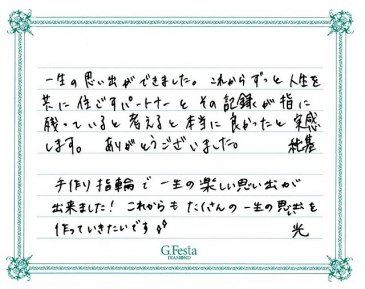 一生の思い出ができました。これからずっと人生を
共に住ごすパートナーとその記録が指に
残っていると考えると本当に良かったと実感
します。ありがとうございました。
手作り指輪で一生の楽しい思い出が
出来ました!これからもたくさんの一生の思い出を
作っていきたいです
光
G.Festa
DIAMOND